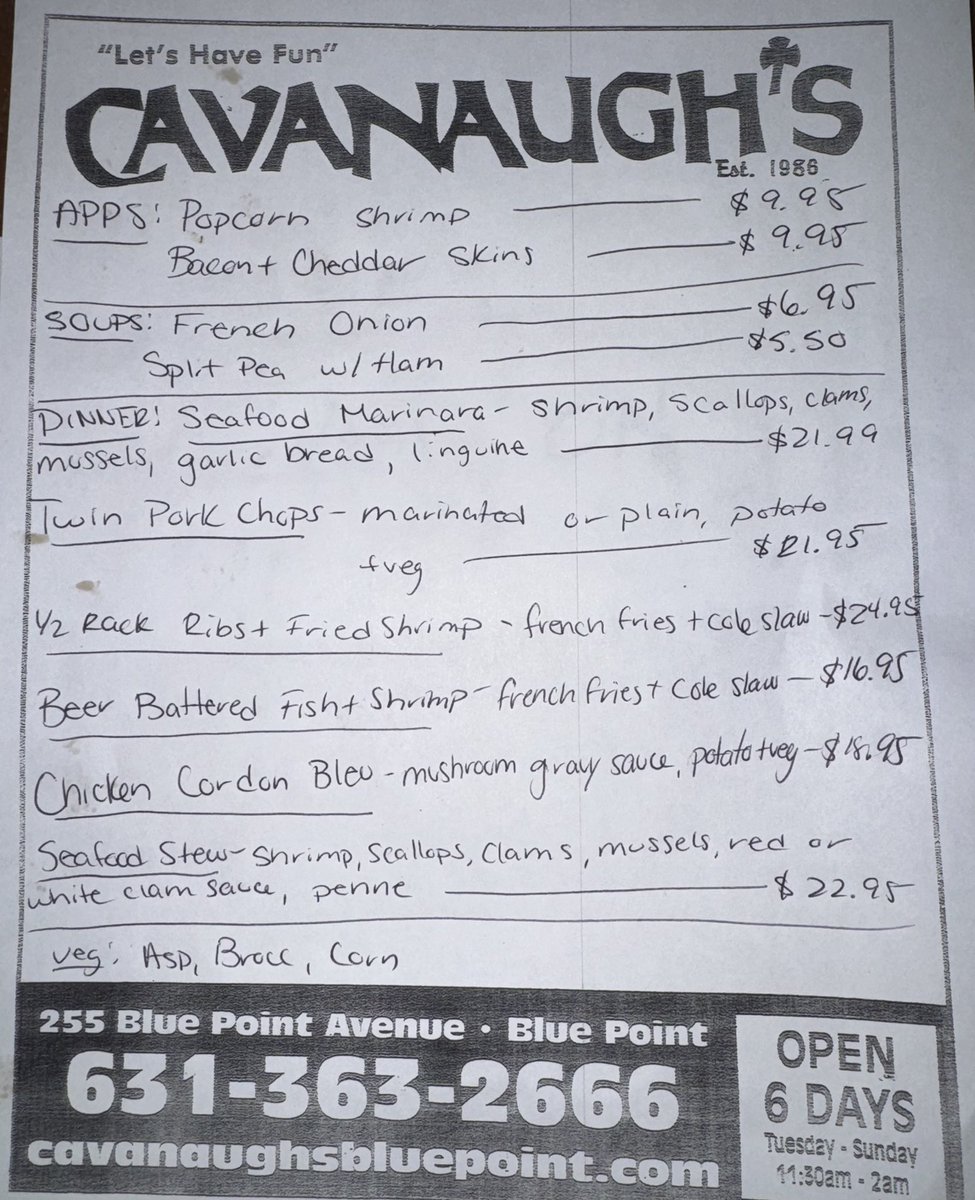 "Let's Have Fun"
CAVANAUGH'S
Est. 1986
APPS: Popcorn Shrimp — $9.95
Bacon + Cheddar Skins — $9.95
SOUPS: French Onion — $6.95
Split Pea w/ Ham — $5.50
DINNER: Seafood Marinara - Shrimp, Scallops, clams,
mussels, garlic bread, linguine — $21.99
Twin Pork Chops - marinated or plain, potato
+ veg — $21.95
1/2 Rack Ribs + Fried Shrimp - french fries + cole slaw - $24.95
Beer Battered Fish + Shrimp - french fries + cole slaw — $16.95
Chicken Cordon Bleu - mushroom gravy sauce, potato + veg - $18.95
Seafood Stew - Shrimp, Scallops, Clams, mussels, red or
white clam sauce, penne — $22.95
veg: Asp, Brocc, Corn
255 Blue Point Avenue • Blue Point
631-363-2666
cavanaughsbluepoint.com
OPEN
6 DAYS
Tuesday - Sunday
11:30am - 2am